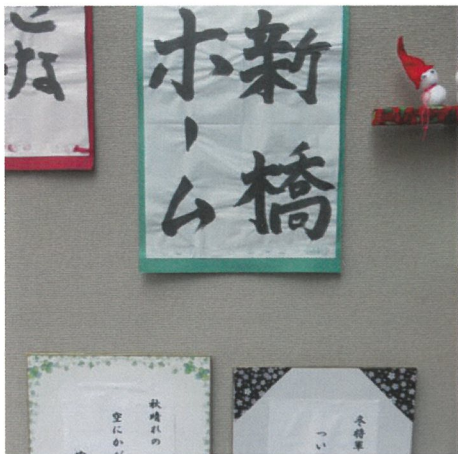 新橋
ホーム
な
秋晴れの
空にか
冬将軍
つい